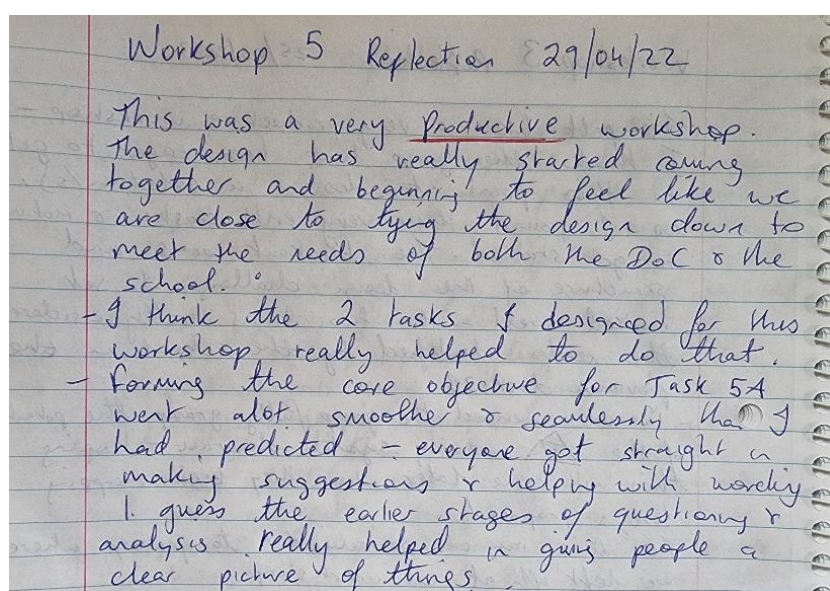 Workshop 5 Reflection 29/04/22
This was a very Productive workshop.
The design has really started coming
together and beginning to feel like we
are close to tying the design down to
meet the needs of both the DoC & the
school.
- I think the 2 tasks I designed for this
workshop really helped to do that.
- Forming the core objective for Task 5A
went alot smoother & seamlessly than I
had predicted - everyone got straight in
making suggestions & helping with wording
I guess the earlier stages of questioning &
analysis really helped in giving people a
clear picture of things.